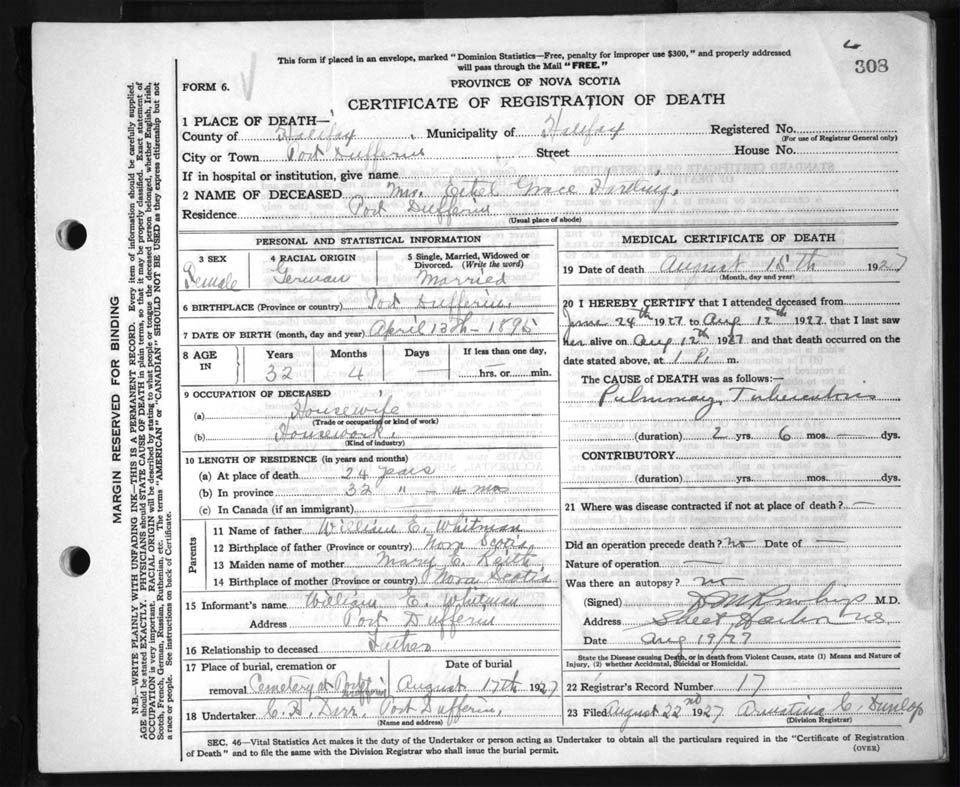 308
This form if placed in an envelope, marked "Dominion Statistics—Free, penalty for improper use $300," and properly addressed
will pass through the Mail "FREE."
FORM 6.
PROVINCE OF NOVA SCOTIA
CERTIFICATE OF REGISTRATION OF DEATH
MARGIN RESERVED FOR BINDING
N.B.—WRITE PLAINLY WITH UNFADING INK—THIS IS A PERMANENT RECORD. Every item of information should be carefully supplied.
AGE should be stated EXACTLY. PHYSICIANS should STATE CAUSE OF DEATH in plain terms, so that it may be properly classified. Exact statement of
OCCUPATION is very important. RACIAL ORIGIN will be described by stating to what people or tongue the deceased person belonged, whether English, Irish,
Scotch, French, German, Russian, Ruthenian, etc. The terms "AMERICAN" or "CANADIAN" SHOULD NOT BE USED as they express citizenship but not
a race or people. See instructions on back of Certificate.
1 PLACE OF DEATH—
County of Halifax, Municipality of Halifax Registered No.
(For use of Registrar General only)
City or Town Port Dufferin Street House No.
If in hospital or institution, give name
2 NAME OF DECEASED Mrs. Ethel Grace
Residence Port Dufferin
(Usual place of abode)
PERSONAL AND STATISTICAL INFORMATION
3 SEX Female
4 RACIAL ORIGIN German
5 Single, Married, Widowed or Divorced. (Write the word) Married
6 BIRTHPLACE (Province or country) Port Dufferin,
7 DATE OF BIRTH (month, day and year) April 13th – 1895
8 AGE IN Years 32 Months 4 Days — If less than one day, hrs. or min.
9 OCCUPATION OF DECEASED
(a) Housewife
(Trade or occupation or kind of work)
(b) Housework.
(Kind of industry)
10 LENGTH OF RESIDENCE (in years and months)
(a) At place of death 24 years
(b) In province 32 " – 4 mos
(c) In Canada (if an immigrant) —
Parents
11 Name of father William E. Whitman
12 Birthplace of father (Province or country) Nova Scotia
13 Maiden name of mother Mary C.
14 Birthplace of mother (Province or country) Nova Scotia
15 Informant's name William E. Whitman
Address Port Dufferin
16 Relationship to deceased Father
17 Place of burial, cremation or removal Cemetery at Port Dufferin
Date of burial August 17th 1927
18 Undertaker C. D. Port Dufferin,
(Name and address)
MEDICAL CERTIFICATE OF DEATH
19 Date of death August 15th 1927
(Month, day and year)
20 I HEREBY CERTIFY that I attended deceased from
June 24th 1927 to Aug 12th 1927 that I last saw
her alive on Aug 12th 1927 and that death occurred on the
date stated above, at 1 P. m.
The CAUSE of DEATH was as follows:—
Pulmonary Tuberculosis
(duration) 2 yrs. 6 mos. — dys.
CONTRIBUTORY
(duration) yrs. mos. dys.
21 Where was disease contracted if not at place of death? —
Did an operation precede death? no Date of —
Nature of operation —
Was there an autopsy? no
(Signed) M.D.
Address Sheet Harbor NS
Date Aug 19/27
State the Disease causing Death, or in death from Violent Causes, state (1) Means and Nature of
Injury, (2) whether Accidental, Suicidal or Homicidal.
22 Registrar's Record Number 17
23 Filed August 22nd 1927 C. Dunlop
(Division Registrar)
SEC. 46—Vital Statistics Act makes it the duty of the Undertaker or person acting as Undertaker to obtain all the particulars required in the "Certificate of Registration
of Death" and to file the same with the Division Registrar who shall issue the burial permit.
(OVER)